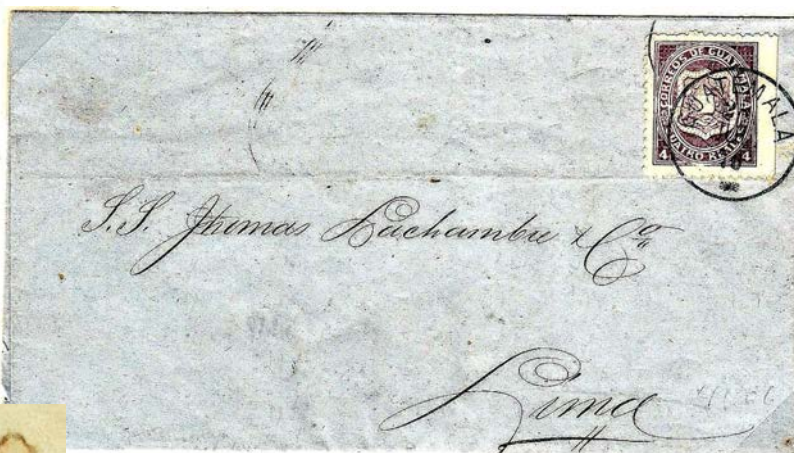 CORREOS DE GUATEMALA
4 CUATRO REALES 4
GUATEMALA
S.S. Thomas Lachambre & Cª
Lima